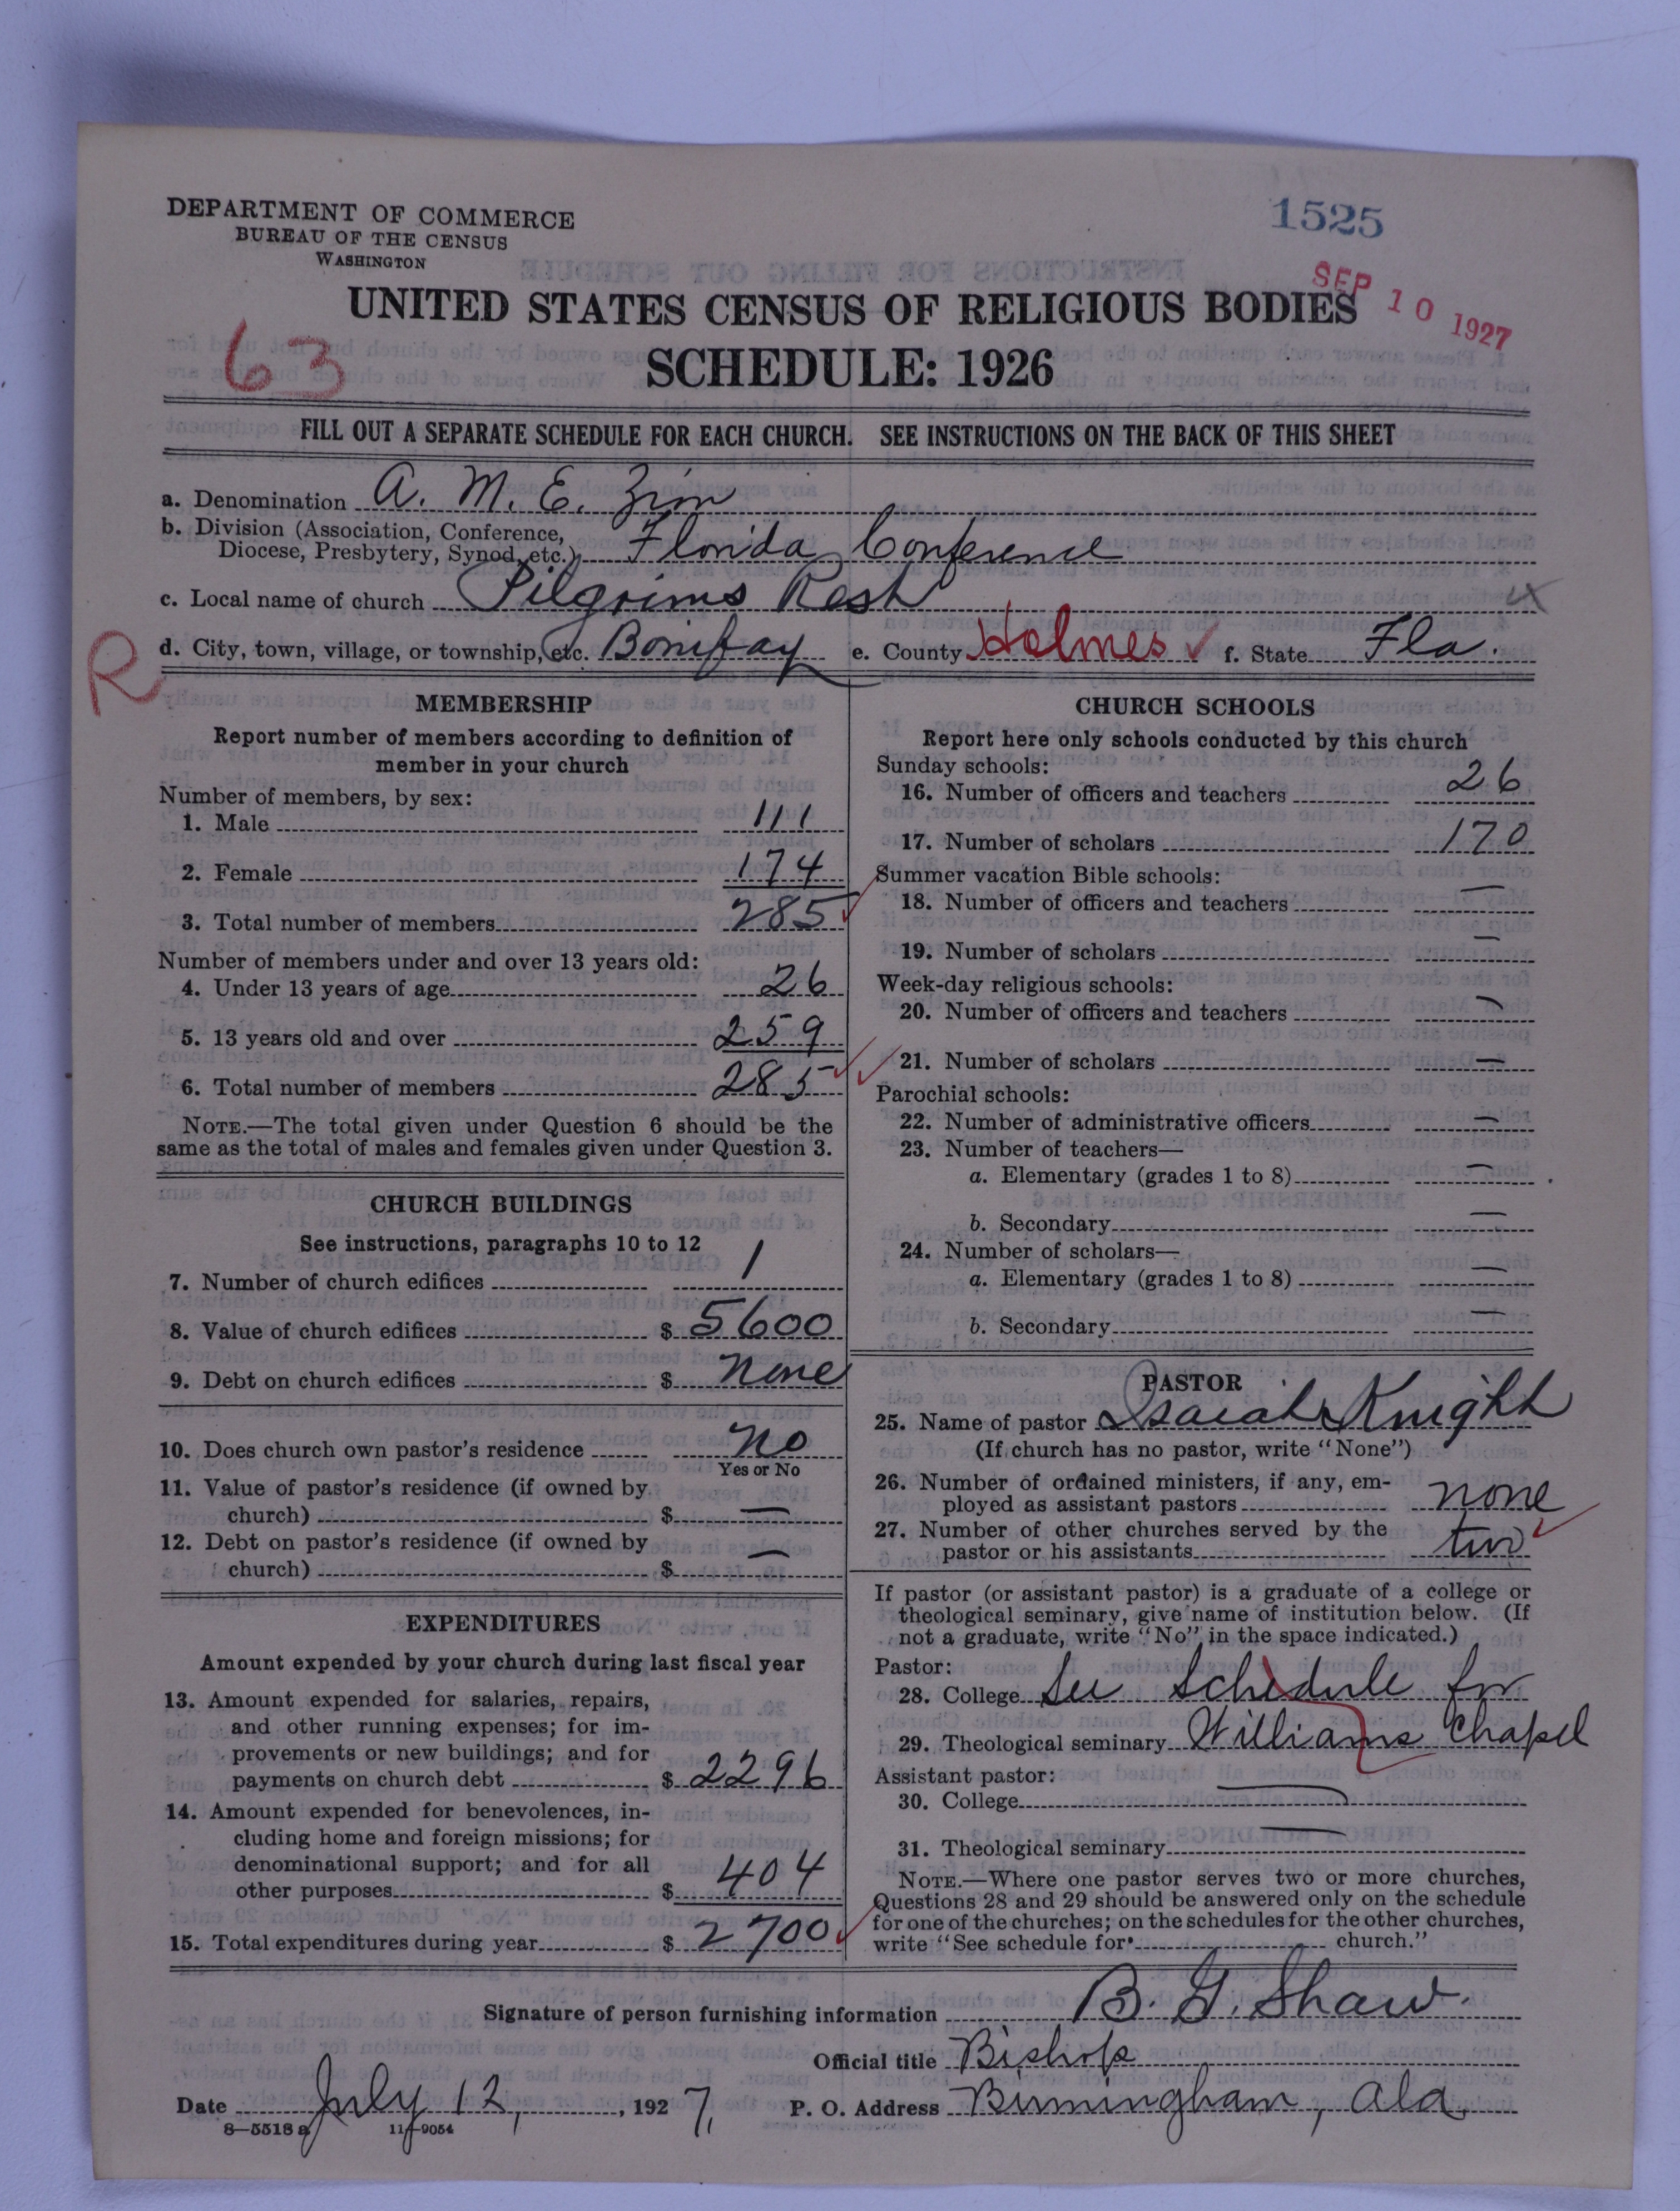 1525
DEPARTMENT OF COMMERCE
BUREAU OF THE CENSUS
WASHINGTON
SEP 10 1927
UNITED STATES CENSUS OF RELIGIOUS BODIES
63
SCHEDULE: 1926
FILL OUT A SEPARATE SCHEDULE FOR EACH CHURCH. SEE INSTRUCTIONS ON THE BACK OF THIS SHEET
a. Denomination A. M. E. Zion
b. Division (Association, Conference,
Diocese, Presbytery, Synod, etc.) Florida Conference
c. Local name of church Pilgrims Rest
R
d. City, town, village, or township, etc. Bonifay e. County Holmes f. State Fla.
MEMBERSHIP
Report number of members according to definition of
member in your church
Number of members, by sex:
1. Male 111
2. Female 174
3. Total number of members 285
Number of members under and over 13 years old:
4. Under 13 years of age 26
5. 13 years old and over 259
6. Total number of members 285
NOTE.—The total given under Question 6 should be the
same as the total of males and females given under Question 3.
CHURCH BUILDINGS
See instructions, paragraphs 10 to 12
7. Number of church edifices 1
8. Value of church edifices $ 5600
9. Debt on church edifices $ none
10. Does church own pastor's residence no
Yes or No
11. Value of pastor's residence (if owned by
church) $ —
12. Debt on pastor's residence (if owned by
church) $ —
EXPENDITURES
Amount expended by your church during last fiscal year
13. Amount expended for salaries, repairs,
and other running expenses; for im-
provements or new buildings; and for
payments on church debt $ 2296
14. Amount expended for benevolences, in-
cluding home and foreign missions; for
denominational support; and for all
other purposes $ 404
15. Total expenditures during year $ 2700
CHURCH SCHOOLS
Report here only schools conducted by this church
Sunday schools:
16. Number of officers and teachers 26
17. Number of scholars 170
Summer vacation Bible schools:
18. Number of officers and teachers —
19. Number of scholars —
Week-day religious schools:
20. Number of officers and teachers —
21. Number of scholars —
Parochial schools:
22. Number of administrative officers —
23. Number of teachers—
a. Elementary (grades 1 to 8) —
b. Secondary —
24. Number of scholars—
a. Elementary (grades 1 to 8) —
b. Secondary —
PASTOR
25. Name of pastor Isaiah Knight
(If church has no pastor, write "None")
26. Number of ordained ministers, if any, em-
ployed as assistant pastors none
27. Number of other churches served by the
pastor or his assistants two
If pastor (or assistant pastor) is a graduate of a college or
theological seminary, give name of institution below. (If
not a graduate, write "No" in the space indicated.)
Pastor:
28. College See Schedule for
29. Theological seminary Williams Chapel
Assistant pastor:
30. College —
31. Theological seminary —
NOTE.—Where one pastor serves two or more churches,
Questions 28 and 29 should be answered only on the schedule
for one of the churches; on the schedules for the other churches,
write "See schedule for church."
Signature of person furnishing information B. G. Shaw.
Official title Bishop
Date July 12, 1927, P. O. Address Birmingham, Ala
8—5518 a 11—9054